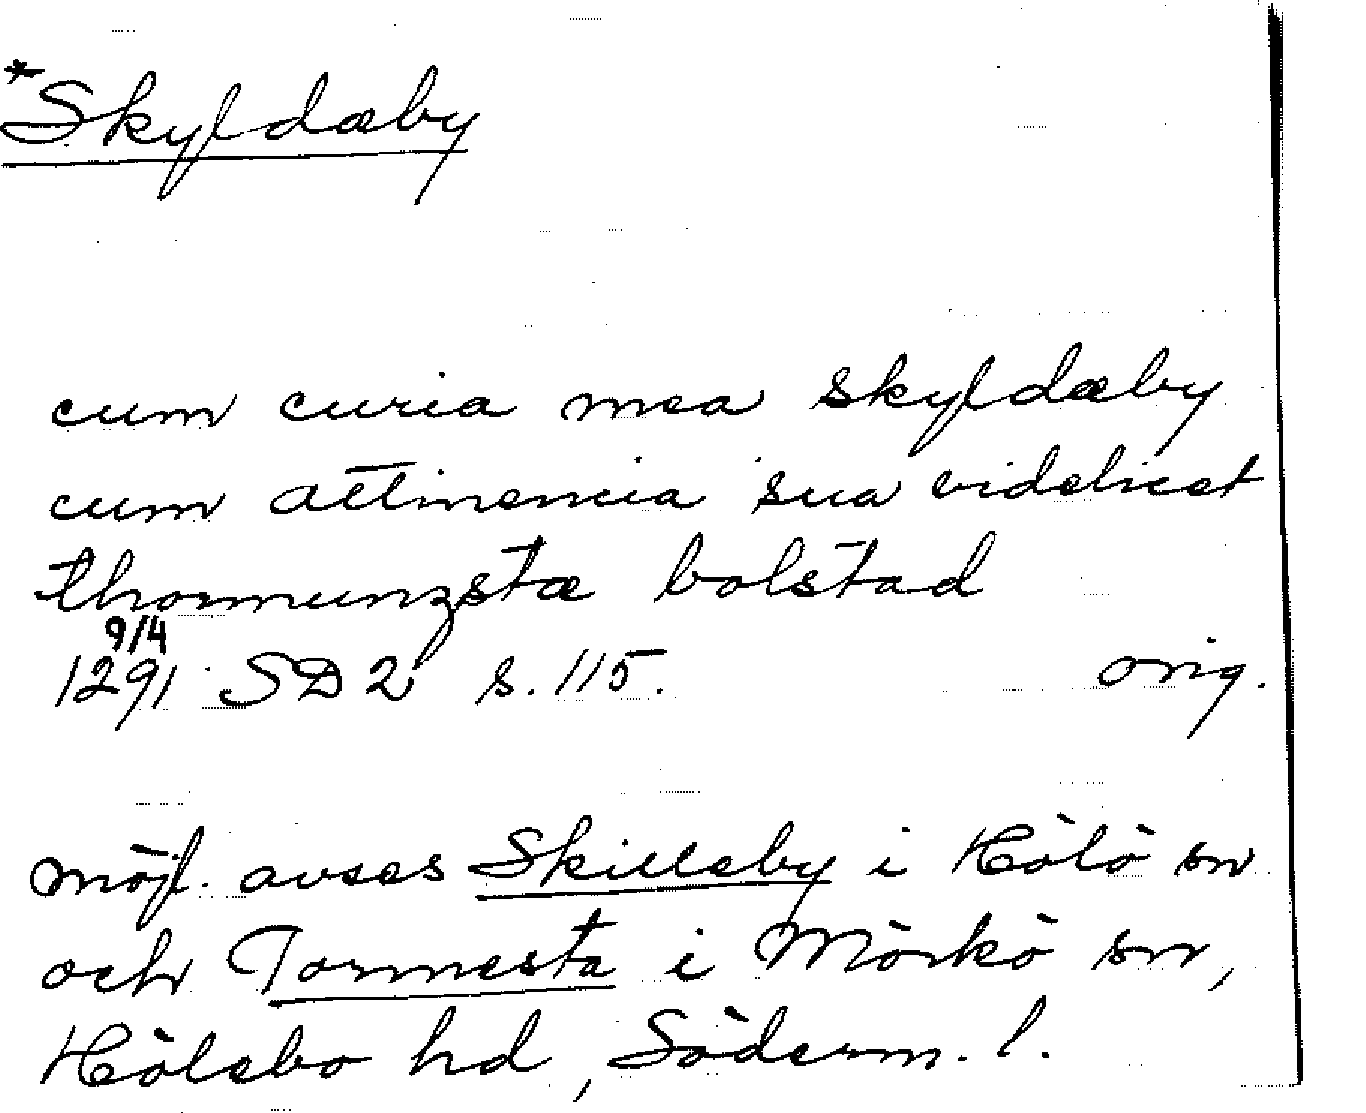 *Skyldæby
cum curia mea skyldæby
cum attinencia sua videlicet
thormunzstæ bolstad
9/4
1291 SD 2 s. 115. orig.
möjl. avses Skilleby i Hölö sn
och Tormesta i Mörkö sn,
Hölebo hd, Söderm. l.